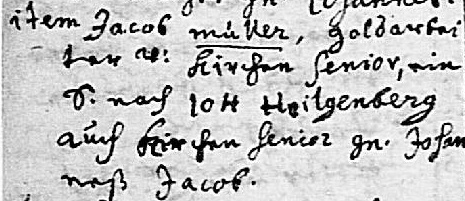 item Jacob müller, goldarbei
ter u: Kirchen Senior, ein
S. nach Joh Heilgenberg
auch Kirchen Senior gn. Johan
neß Jacob.